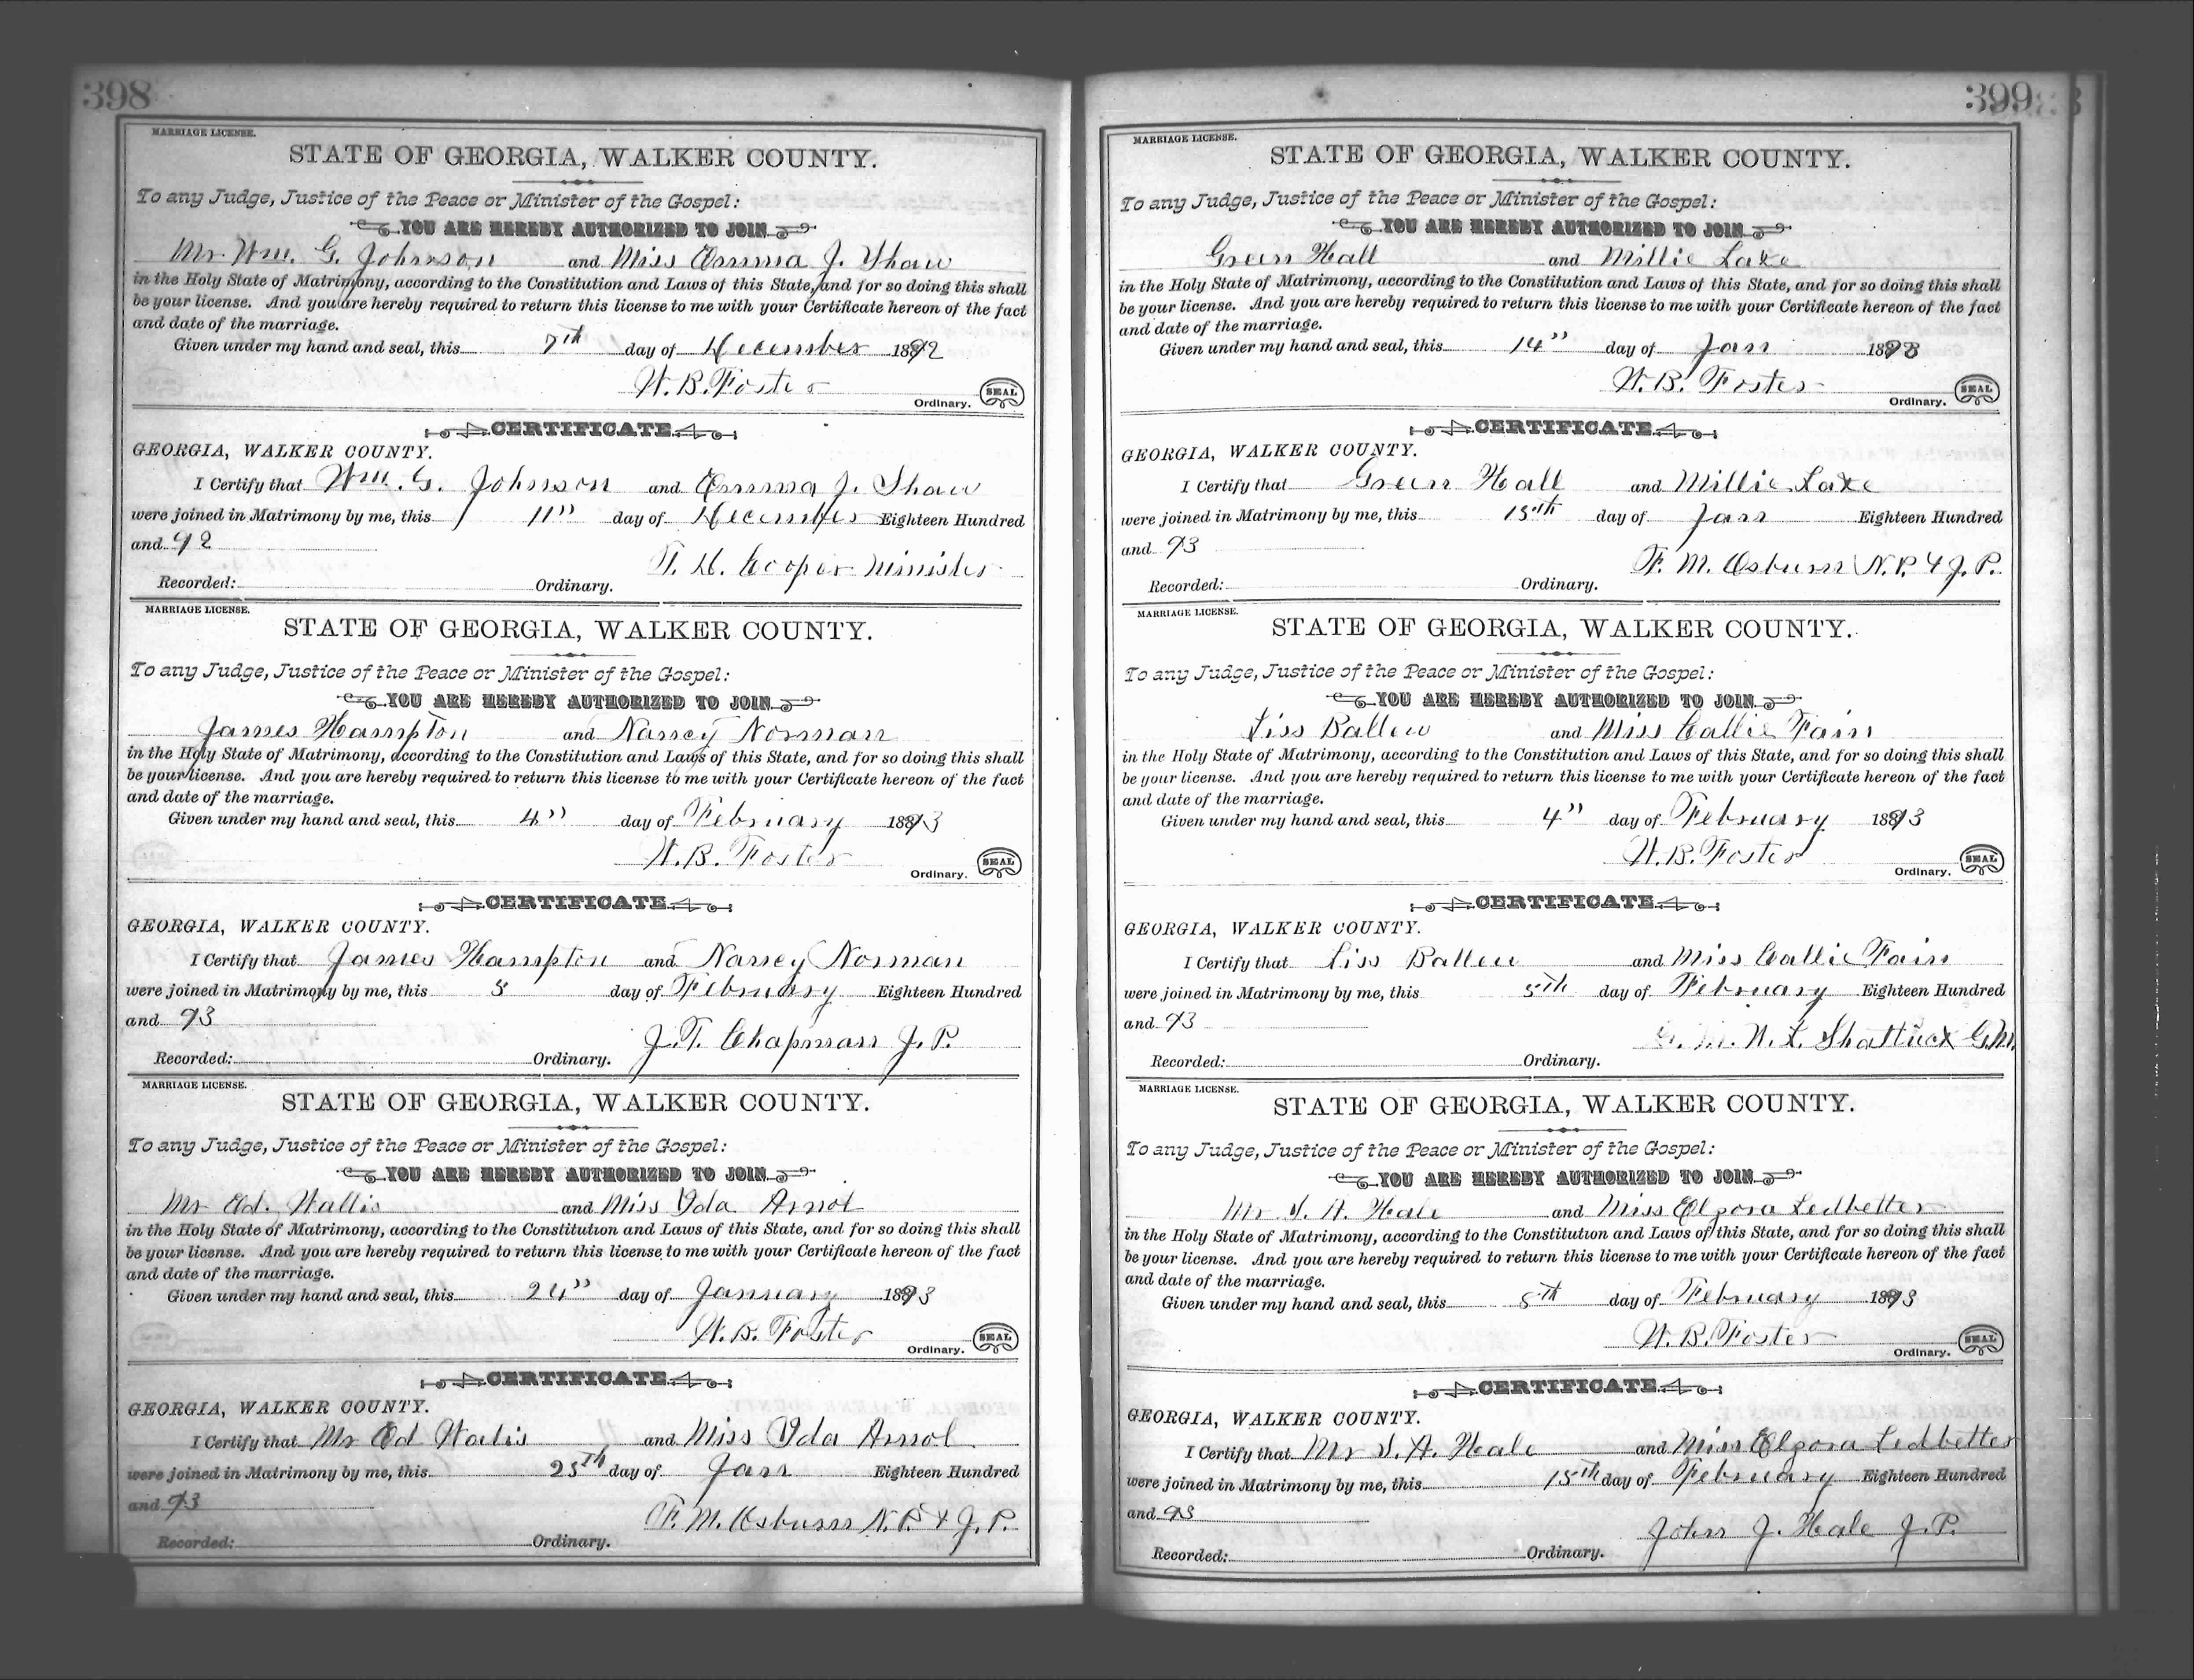 398
MARRIAGE LICENSE.
STATE OF GEORGIA, WALKER COUNTY.
To any Judge, Justice of the Peace or Minister of the Gospel:
YOU ARE HEREBY AUTHORIZED TO JOIN
Mr. Wm. G. Johnson and Miss Emma J. Shaw
in the Holy State of Matrimony, according to the Constitution and Laws of this State, and for so doing this shall
be your license. And you are hereby required to return this license to me with your Certificate hereon of the fact
and date of the marriage.
Given under my hand and seal, this 7th day of December 1892
W. B. Foster
Ordinary. SEAL
CERTIFICATE
GEORGIA, WALKER COUNTY.
I Certify that Wm. G. Johnson and Emma J. Shaw
were joined in Matrimony by me, this 11" day of December Eighteen Hundred
and 92
T. H. Cooper Minister
Recorded: Ordinary.
MARRIAGE LICENSE.
STATE OF GEORGIA, WALKER COUNTY.
To any Judge, Justice of the Peace or Minister of the Gospel:
YOU ARE HEREBY AUTHORIZED TO JOIN
James Hampton and Nancy Norman
in the Holy State of Matrimony, according to the Constitution and Laws of this State, and for so doing this shall
be your license. And you are hereby required to return this license to me with your Certificate hereon of the fact
and date of the marriage.
Given under my hand and seal, this 4" day of February 1893
W. B. Foster
Ordinary. SEAL
CERTIFICATE
GEORGIA, WALKER COUNTY.
I Certify that James Hampton and Nancy Norman
were joined in Matrimony by me, this 5 day of February Eighteen Hundred
and 93
J. T. Chapman J. P.
Recorded: Ordinary.
MARRIAGE LICENSE.
STATE OF GEORGIA, WALKER COUNTY.
To any Judge, Justice of the Peace or Minister of the Gospel:
YOU ARE HEREBY AUTHORIZED TO JOIN
Mr Ed. Wallis and Miss Ida Arnol
in the Holy State of Matrimony, according to the Constitution and Laws of this State, and for so doing this shall
be your license. And you are hereby required to return this license to me with your Certificate hereon of the fact
and date of the marriage.
Given under my hand and seal, this 24" day of January 1893
W. B. Foster
Ordinary. SEAL
CERTIFICATE
GEORGIA, WALKER COUNTY.
I Certify that Mr Ed Walis and Miss Ida Arnol
were joined in Matrimony by me, this 25th day of Jan Eighteen Hundred
and 93
F. M. Osburn N. P. & J. P.
Recorded: Ordinary.
399
MARRIAGE LICENSE.
STATE OF GEORGIA, WALKER COUNTY.
To any Judge, Justice of the Peace or Minister of the Gospel:
YOU ARE HEREBY AUTHORIZED TO JOIN
Green Hall and Millie Lake
in the Holy State of Matrimony, according to the Constitution and Laws of this State, and for so doing this shall
be your license. And you are hereby required to return this license to me with your Certificate hereon of the fact
and date of the marriage.
Given under my hand and seal, this 14" day of Jan 1893
W. B. Foster
Ordinary. SEAL
CERTIFICATE
GEORGIA, WALKER COUNTY.
I Certify that Green Hall and Millie Lake
were joined in Matrimony by me, this 15th day of Jan Eighteen Hundred
and 93
F. M. Osburn N. P. & J. P.
Recorded: Ordinary.
MARRIAGE LICENSE.
STATE OF GEORGIA, WALKER COUNTY.
To any Judge, Justice of the Peace or Minister of the Gospel:
YOU ARE HEREBY AUTHORIZED TO JOIN
Liss Ballew and Miss Callie Fain
in the Holy State of Matrimony, according to the Constitution and Laws of this State, and for so doing this shall
be your license. And you are hereby required to return this license to me with your Certificate hereon of the fact
and date of the marriage.
Given under my hand and seal, this 4" day of February 1893
W. B. Foster
Ordinary. SEAL
CERTIFICATE
GEORGIA, WALKER COUNTY.
I Certify that Liss Ballew and Miss Callie Fain
were joined in Matrimony by me, this 5th day of February Eighteen Hundred
and 93
W. L. Shattuck G.M.
Recorded: Ordinary.
MARRIAGE LICENSE.
STATE OF GEORGIA, WALKER COUNTY.
To any Judge, Justice of the Peace or Minister of the Gospel:
YOU ARE HEREBY AUTHORIZED TO JOIN
Mr. J. A. Hale and Miss Elzora Ledbetter
in the Holy State of Matrimony, according to the Constitution and Laws of this State, and for so doing this shall
be your license. And you are hereby required to return this license to me with your Certificate hereon of the fact
and date of the marriage.
Given under my hand and seal, this 5th day of February 1893
W. B. Foster
Ordinary. SEAL
CERTIFICATE
GEORGIA, WALKER COUNTY.
I Certify that Mr J. A. Hale and Miss Elzora Ledbetter
were joined in Matrimony by me, this 15th day of February Eighteen Hundred
and 93
John J. Hale J. P.
Recorded: Ordinary.